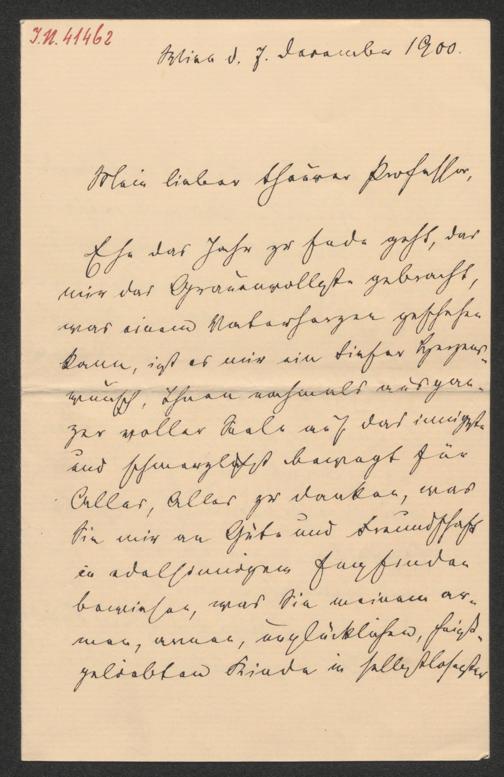 I.N. 41462
Wien d. 7. December 1900.
Mein lieber theurer Professor,
Ehe das Jahr zu Ende geht, das
mir das Grauenvollste gebracht,
was einem Vaterherzen geschehen
kann, ist es mir ein tiefer Herzens-
wunsch, Ihnen nochmals aus gan-
zer voller Seele auf das innigste
und schmerzlichst bewegt für
Alles, Alles zu danken, was
Sie mir an Güte und Freundschaft
in edelsinnigem Empfinden
bewiesen, was Sie meinem ar-
men, armen, unglücklichen, heiß-
geliebten Kinde in selbstlosester